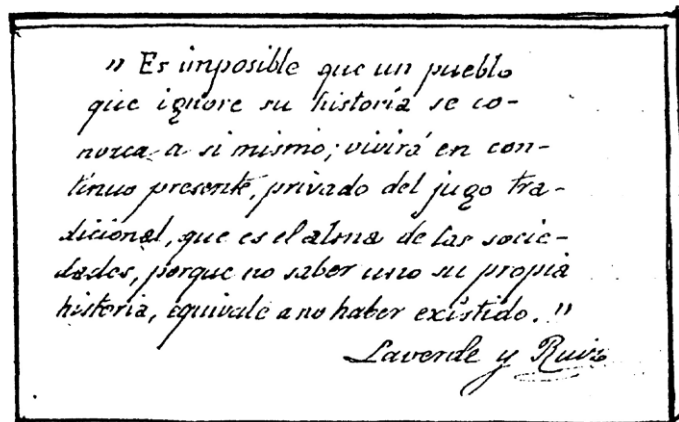 " Es imposible que un pueblo
que ignore su historia se co-
nozca a si mismo; vivirá en con-
tínuo presente, privado del jugo tra-
dicional, que es el alma de las socie-
dades, porque no saber uno su propia
historia, equivale a no haber existido. "
Laverde y Ruiz